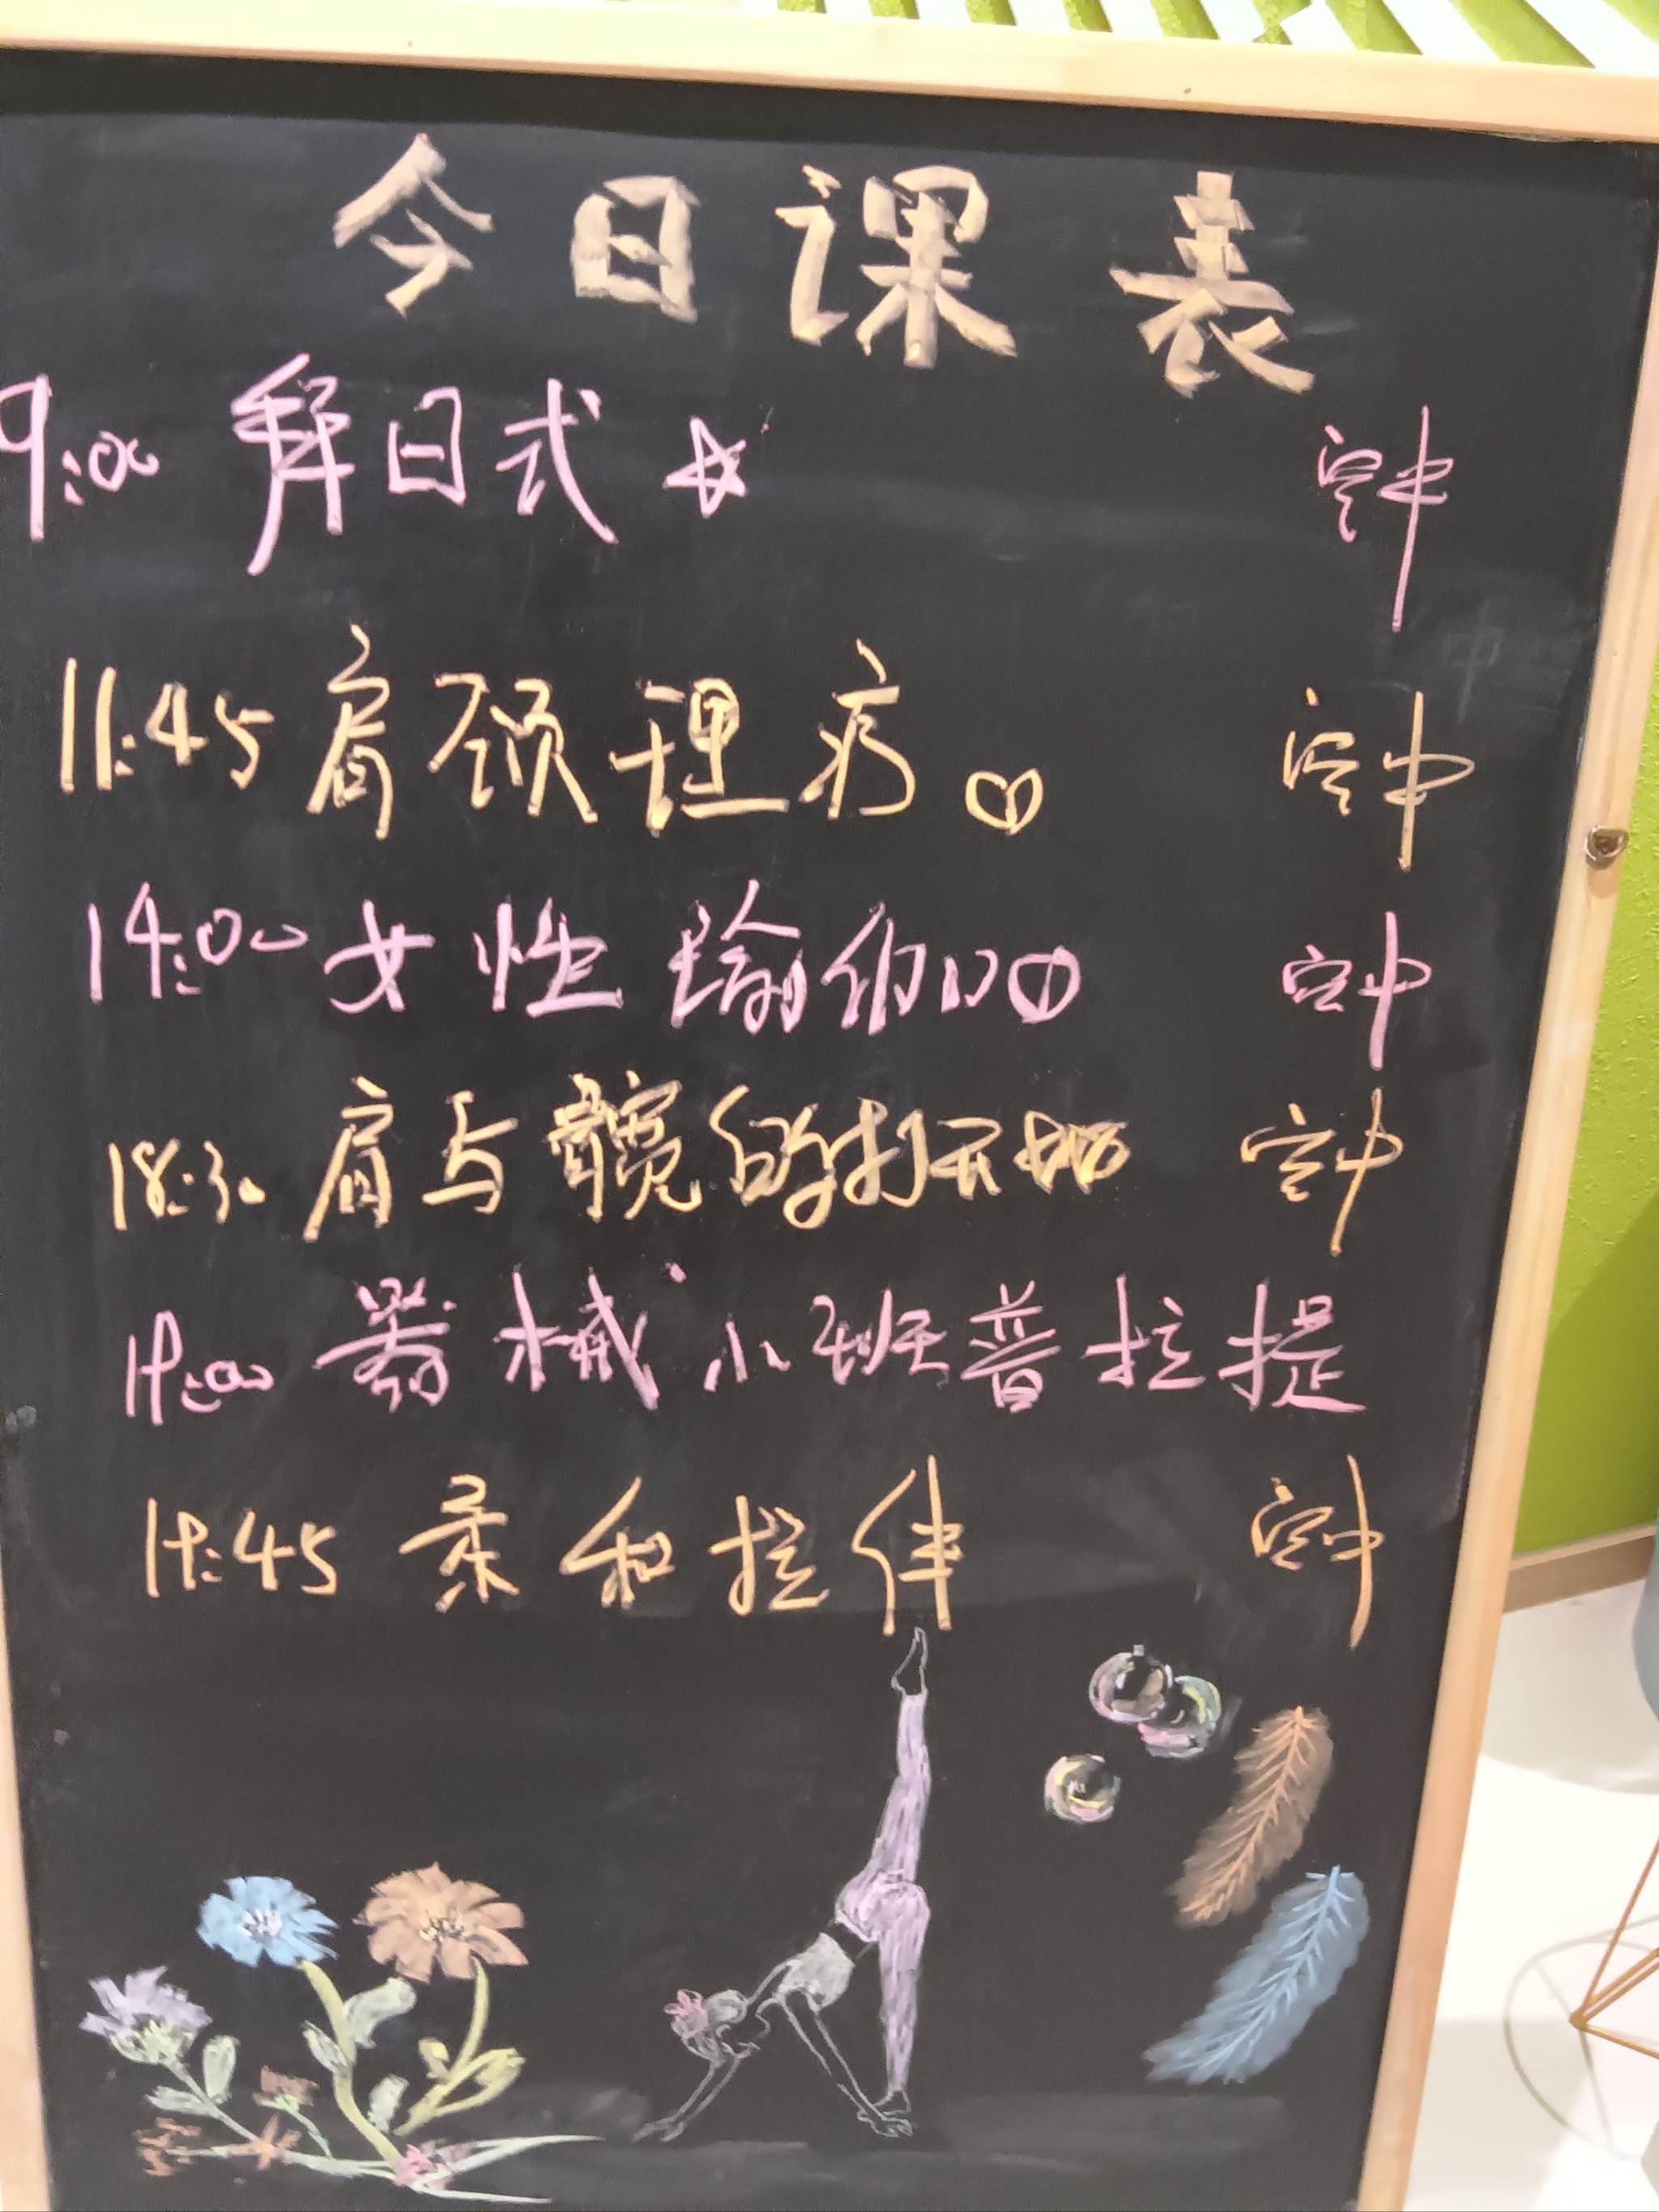 今日课表
9:00 拜日式
11:45 肩颈理疗
14:00 女性瑜伽
18:30 肩与髋的打开
19:00 器械小班普拉提
19:45 柔和拉伸